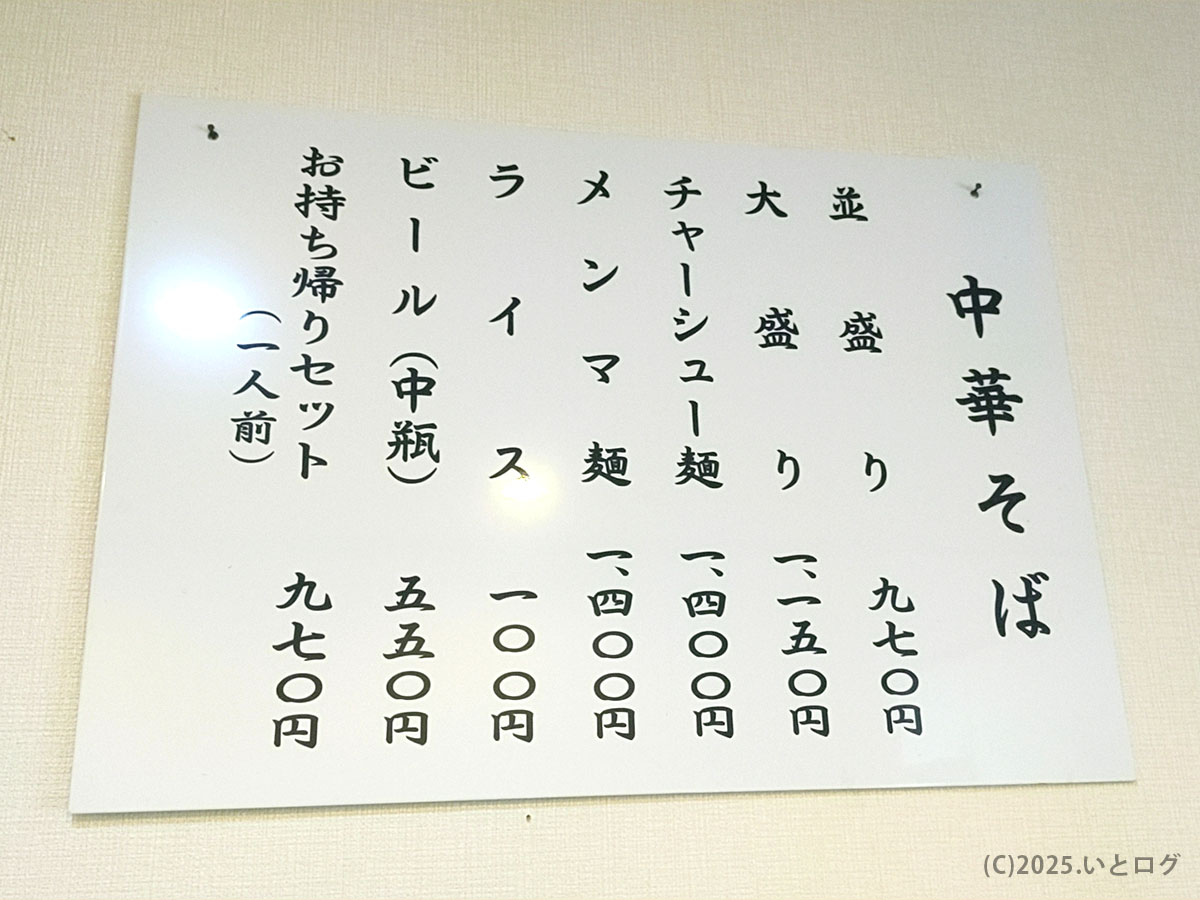 中華そば
並盛り 九七〇円
大盛り 一、一五〇円
チャーシュー麺 一、四〇〇円
メンマ麺 一、四〇〇円
ライス 一〇〇円
ビール(中瓶) 五五〇円
お持ち帰りセット 九七〇円
(一人前)
(C)2025.いとログ